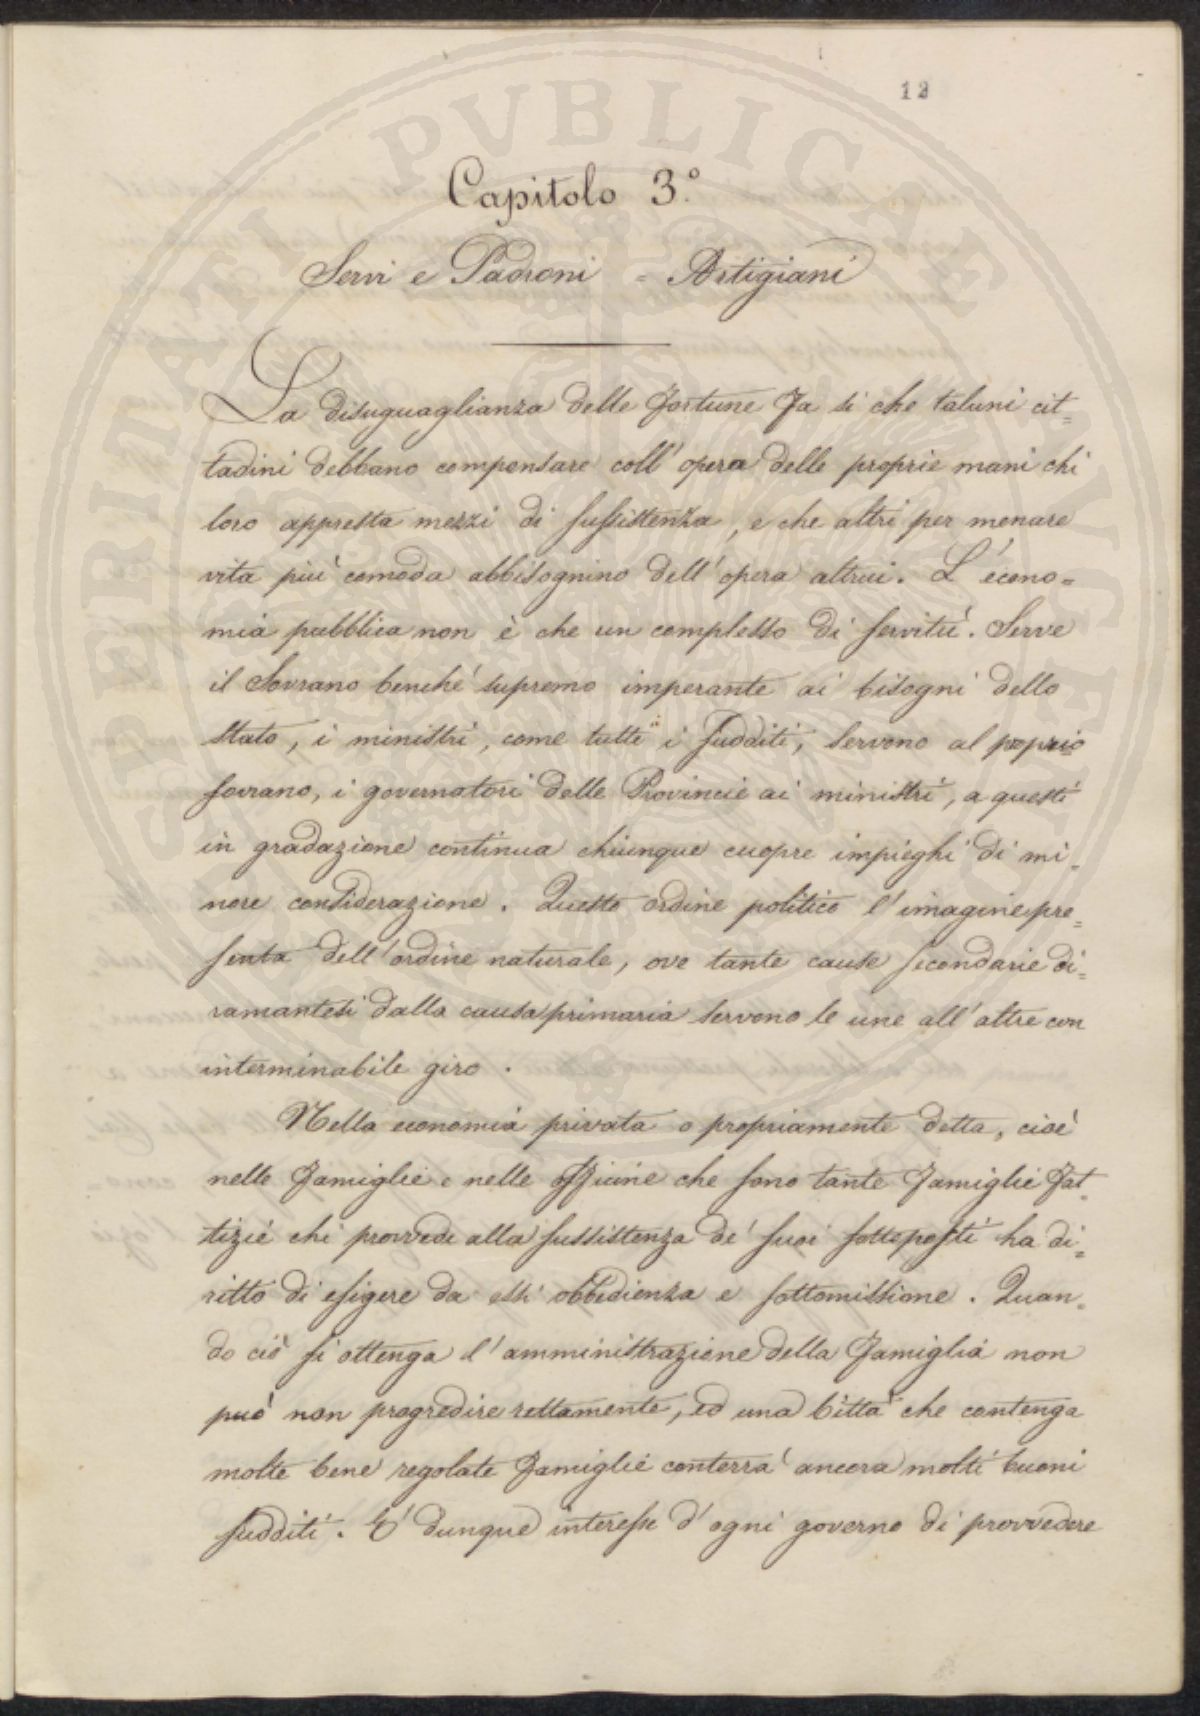 12
Capitolo 3.º
Servi e Padroni = Artigiani
La disuguaglianza delle fortune fa sì che taluni cit=
tadini debbano compensare coll'opera delle proprie mani chi
loro appresta mezzi di sussistenza, e che altri per menare
vita più comoda abbisognino dell'opera altrui. L'econo=
mia pubblica non è che un complesso di servitù. Serve
il Sovrano benché supremo imperante ai bisogni dello
stato, i ministri, come tutti i sudditi, servono al proprio
sovrano, i governatori delle Provincie ai ministri, a questi
in gradazione continua chiunque cuopre impieghi di mi=
nore considerazione. Questo ordine politico l'imagine pre=
senta dell'ordine naturale, ove tante cause secondarie di=
ramantesi dalla causa primaria servono le une all'altre con
interminabile giro.
Nella economia privata o propriamente detta, cioè
nelle famiglie e nelle officine che sono tante famiglie fat=
tizie chi provvede alla sussistenza de' suoi sottoposti ha di=
ritto di esigere da essi obbedienza e sottomissione. Quan=
do ciò si ottenga l'amministrazione della famiglia non
può non progredire rettamente, ed una Città che contenga
molte bene regolate famiglie conterrà ancora molti buoni
sudditi. È dunque interesse d'ogni governo di provvedere
SPERINATI PVBLICAE